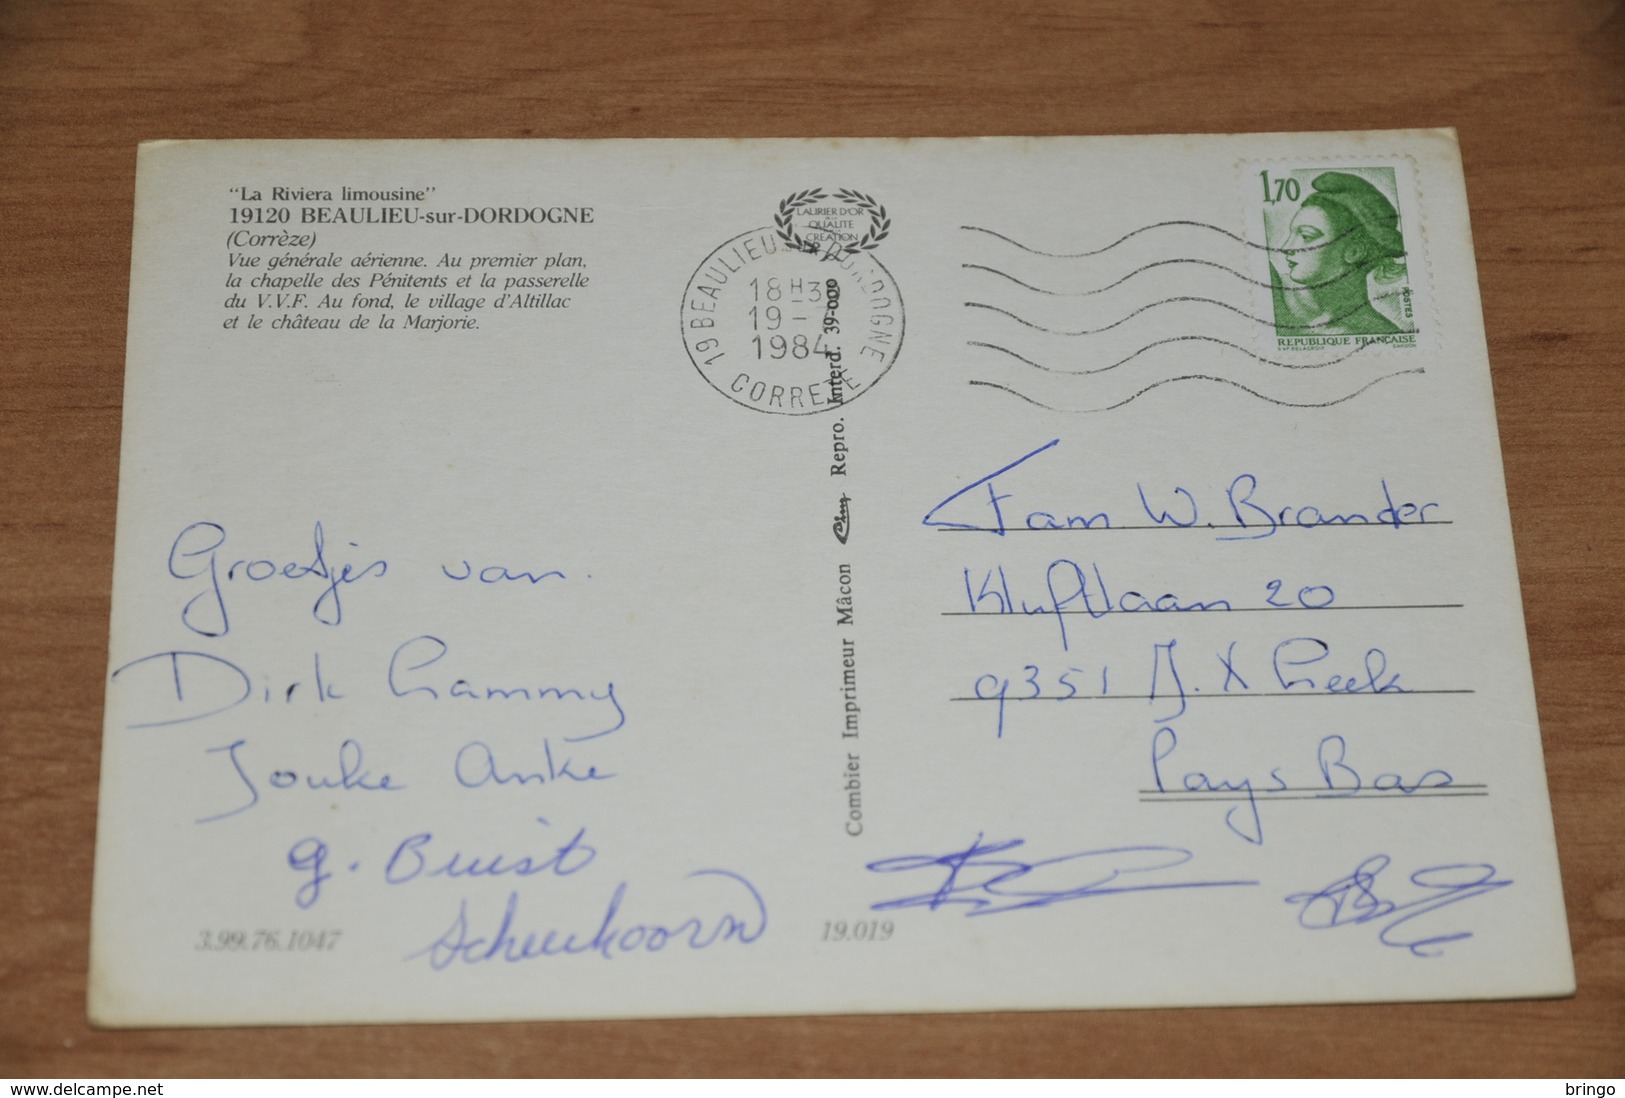 "La Riviera limousine"
19120 BEAULIEU-sur-DORDOGNE
(Corrèze)
Vue générale aérienne. Au premier plan,
la chapelle des Pénitents et la passerelle
du V.V.F. Au fond, le village d'Altillac
et le château de la Marjorie.
LAURIER D'OR
QUALITÉ
CRÉATION
19 BEAULIEU SUR DORDOGNE
18 H 30
19 -
1984
CORREZE
1,70
POSTES
REPUBLIQUE FRANÇAISE
D'AP. DELACROIX GANDON
Combier Imprimeur Mâcon Repro. Interd. 39-009
Groetjes van.
Dirk Grammy
Jouke Anke
G. Buist
Scheukoorn
Fam W. Brander
Kluftlaan 20
9351 Creek
Pays Bas
3.99.76.1047
19.019
delcampe.net
bringo